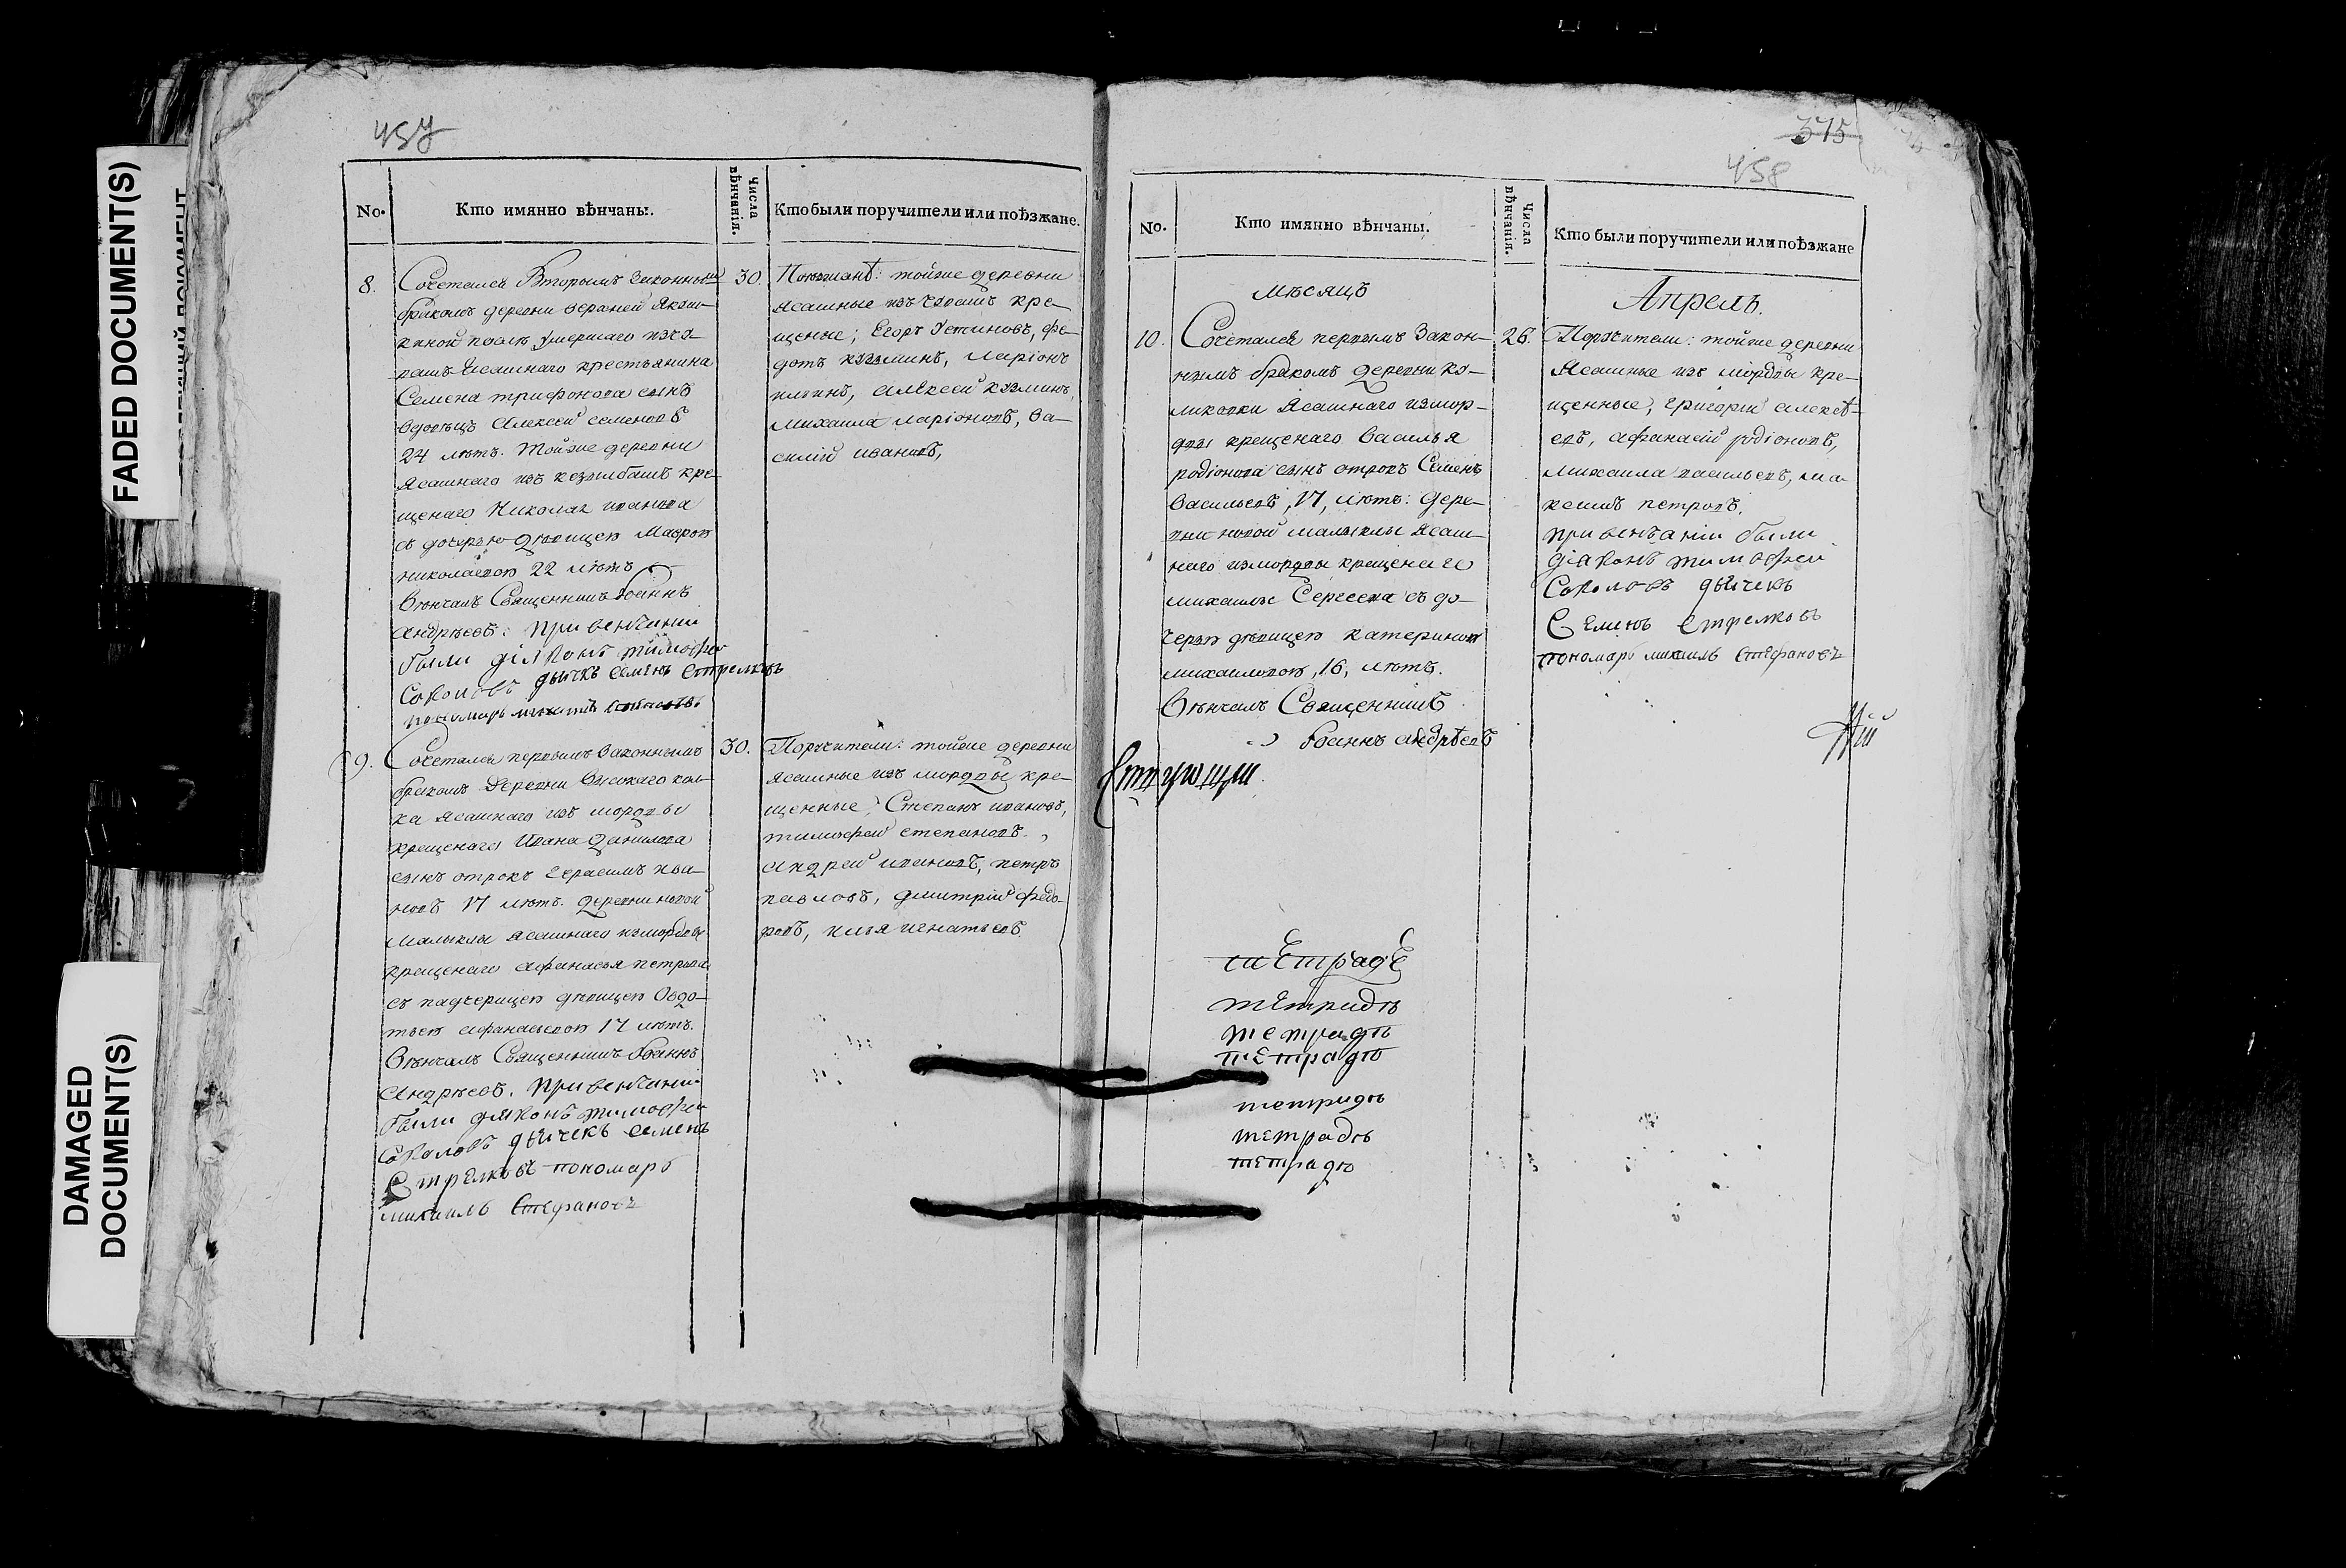 FADED DOCUMENT(S)
DAMAGED
DOCUMENT(S)
457
No. Кто имянно вѣнчаны. Числа вѣнчанія. Кто были поручители или поѣзжане.
8. Сочетался Вторымъ Законнымъ 30.
бракомъ деревни верхней Якуш-
киной послѣ умершаго изъ чу-
вашъ Ясашнаго крестьянина
Семена трифонова сынъ
вдовѣцъ Алексей семеновъ
24 лѣтъ. тойже деревни
Ясашнаго изъ кре-
щенаго Николая иванова
съ дочерью дѣвицею Маврою
николаевою 22 лѣтъ
Вѣнчалъ Священникъ Іоаннъ
андрѣевъ. При венчании
были діяконъ тимофеи
Соколовъ дьячекъ семенъ Стрелковъ
пономарь
Поѣзжанѣ: тойже деревни
Ясашные изъ чувашъ кре-
щеные; Егоръ Устиновъ, фе-
дотъ кузминъ, ларіонъ
алексей кузминъ,
михаила ларіоновъ, ва-
силій ивановъ,
9. Сочетался первымъ Законнымъ 30.
бракомъ Деревни Высокаго кол-
ка Ясашнаго изъ мордвы
крещенаго Ивана данилова
сынъ отрокъ Герасимъ ива-
новъ 17 лѣтъ. деревни новой
малыклы Ясашнаго измордвы
крещенаго афанасья петрова
съ падчерицею дѣвицею Овдо-
тьею афанасьевою 17 лѣтъ.
Вѣнчалъ Священникъ Іоаннъ
Андрѣевъ. При венчании
были діяконъ тимофеи
Соколовъ дьячекъ семенъ
Стрелковъ пономарь
михаилъ Стефановъ
Поручители: тойже деревни
Ясашные изъ мордвы кре-
щенные; Степанъ ивановъ,
тимофей степановъ,
андрей ивановъ, петръ
павловъ, дмитрій федо-
ровъ, илья игнатьевъ
375
458
No. Кто имянно вѣнчаны. Числа вѣнчанія. Кто были поручители или поѣзжане
Мѣсяцъ Апрель.
10. Сочетался первымъ Закон- 26.
нымъ бракомъ деревни ку-
ликовки Ясашнаго измор-
двы крещенаго Василья
родіонова сынъ отрокъ Семенъ
Васильевъ, 17, лѣтъ: дере-
вни новой малыклы Ясаш-
наго измордвы крещенаго
михаилы Сергеева съ до-
черью дѣвицею катериною
михаиловою, 16, лѣтъ.
Вѣнчалъ Священникъ
Іоаннъ андрѣевъ
Поручители: тойже деревни
Ясашные изъ мордвы кре-
щенные, григорій алексѣ-
евъ, афанасій родіоновъ,
михаила васильевъ, ма-
ксимъ петровъ.
при венчаніи были
діяконъ тимофеи
Соколовъ дьячекъ
Семенъ Стрелковъ
пономарь михаилъ Стефановъ
тетраде
тетрадь
тетрадь
тетрадь
тетрадь
тетрадь
тетрадь